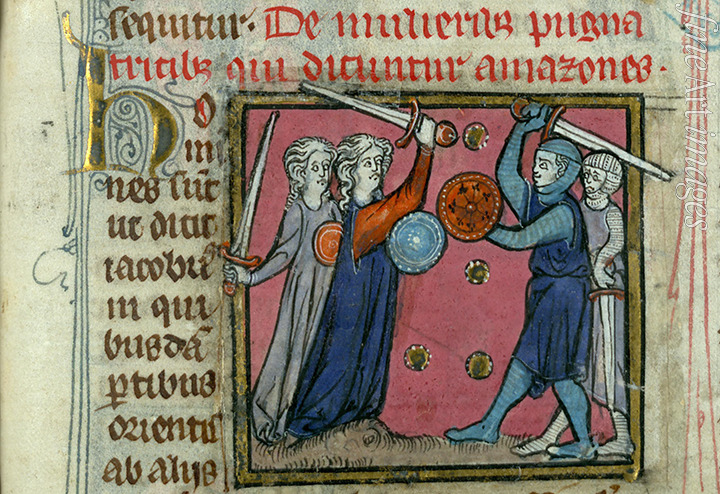 sequitur. De mulieribs pugna
tricibs qui dicuntur amazones.
Ho
mi
nes sūt
ut dicit
iacobus
in qui
busdā
ꝑtibus
orientis
ab alijs
fineartimages